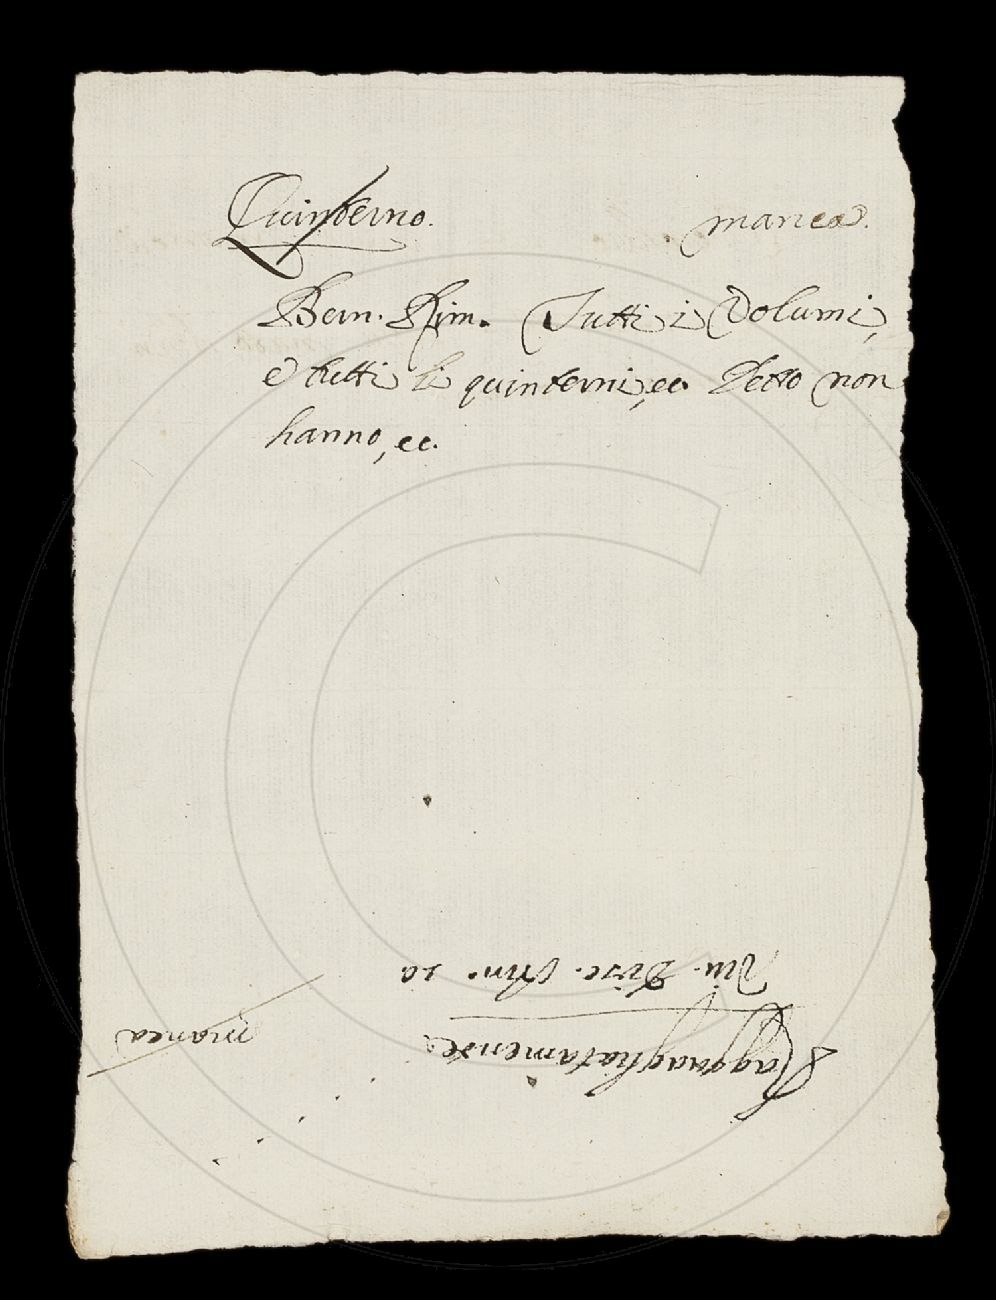 Quinterno. manca.
Bern. Rim. Tutti i Volumi,
e tutti li quinterni, ec. Detto non
hanno, ec.
Ragguagliatamente manca
Viv. Disc. Arn. 10